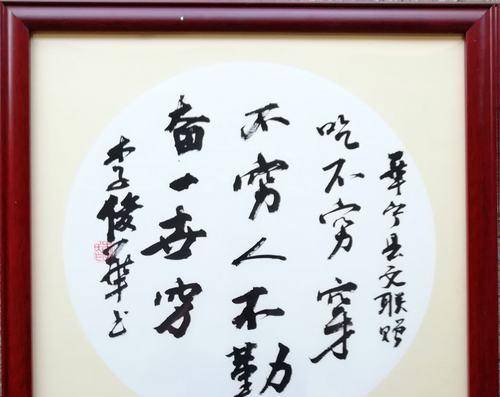 華宁县文联赠
吃不穷穿
不穷人不勤
奋一世穷
李俊華书